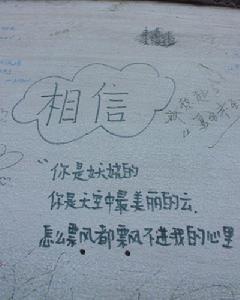 相信
“你是妖娆的
你是天空中最美丽的云.
怎么飘风都飘不进我的心里